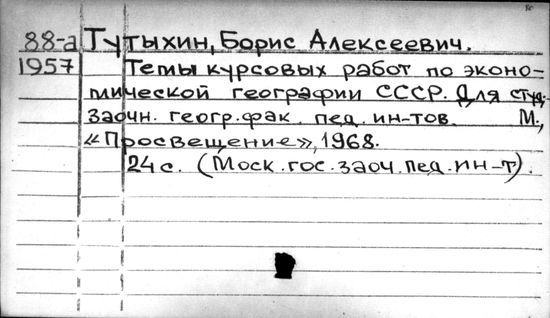 88-а Тутыхин, Борис Алексеевич.
1957 Темы курсовых работ по эконо-
мической географии СССР. Для студ.
заочн. геогр. фак. пед. ин-тов. М.,
«Просвещение», 1968.
24 с. (Моск. гос. заоч. пед. ин-т).